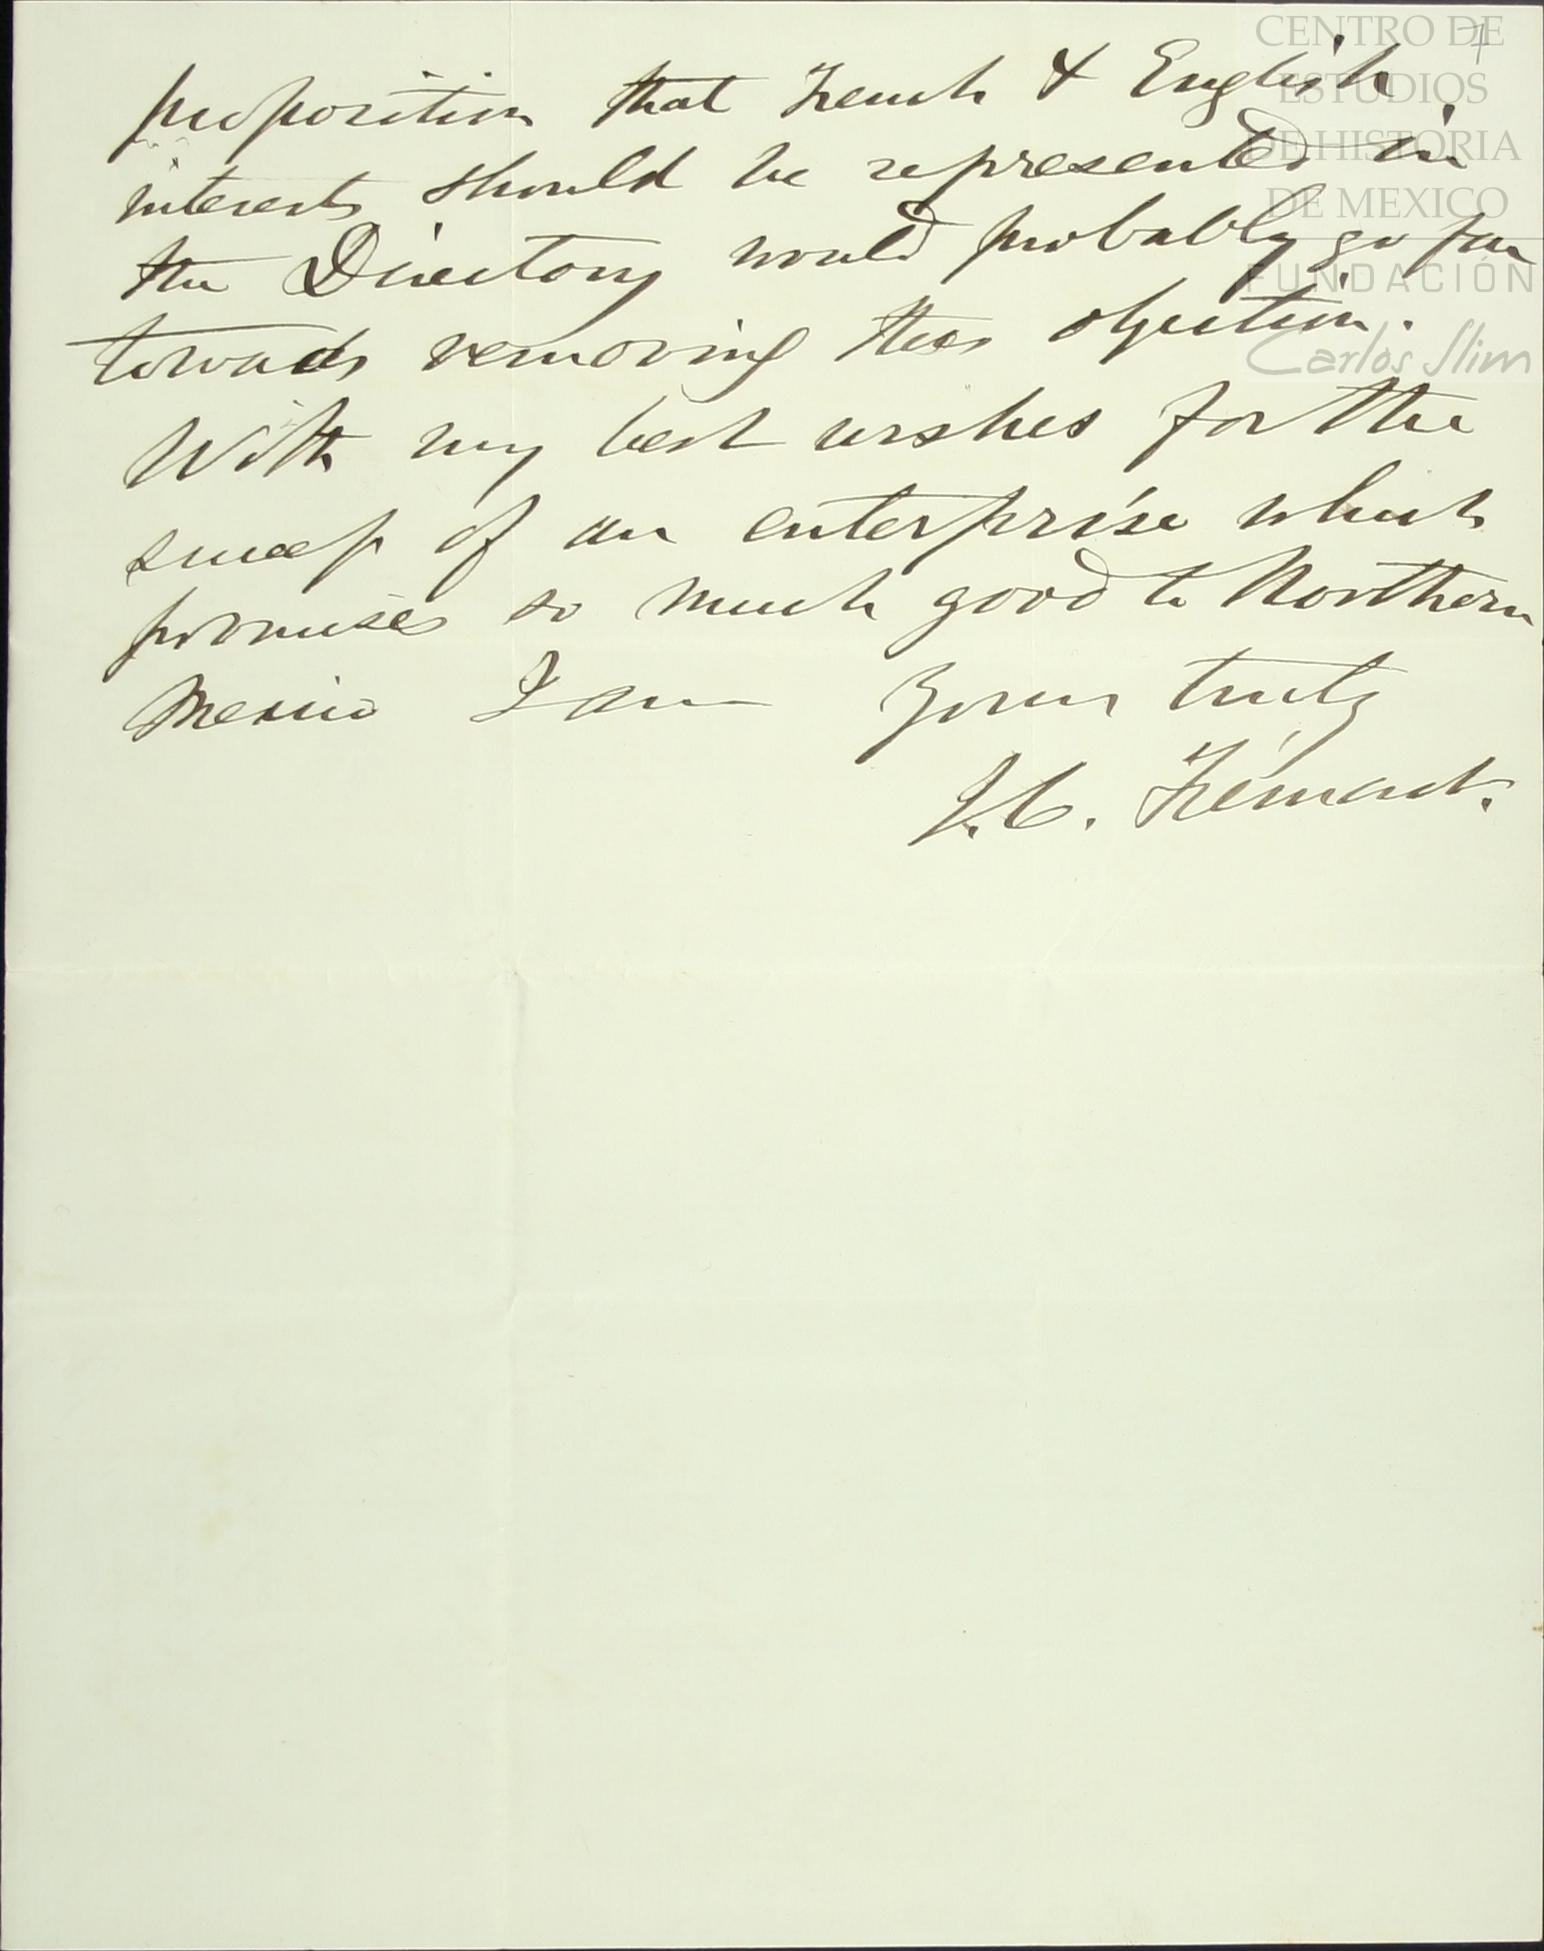 7
CENTRO DE
ESTUDIOS
DE HISTORIA
DE MEXICO
FUNDACIÓN
Carlos Slim
proposition that French & English
interests should be represented in
the Directory would probably go far
towards removing this objection.
With my best wishes for the
success of an enterprise which
promises so much good to Northern
Mexico I am Yours truly
J. C. Frémont.